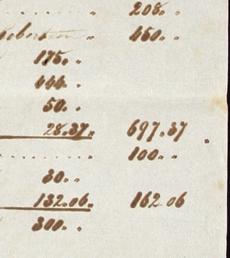 . . . . . 208. "
" 450. "
175. "
444. "
50. "
28.37. 697.37
. . . . . 100. "
30. "
132.06. 162.06
300. "